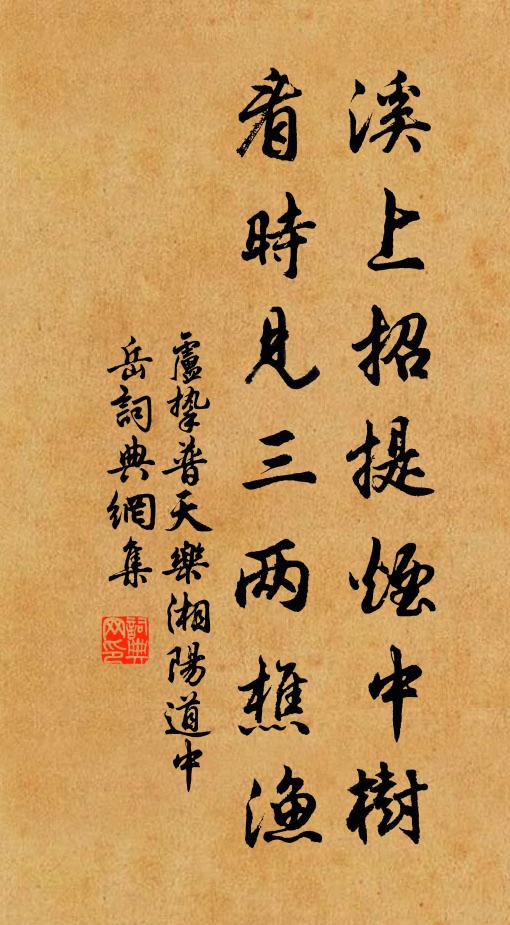 溪上招提煙中樹
看時見三两樵漁
盧摯普天樂湘陽道中
岳詞典網集
詞典網印